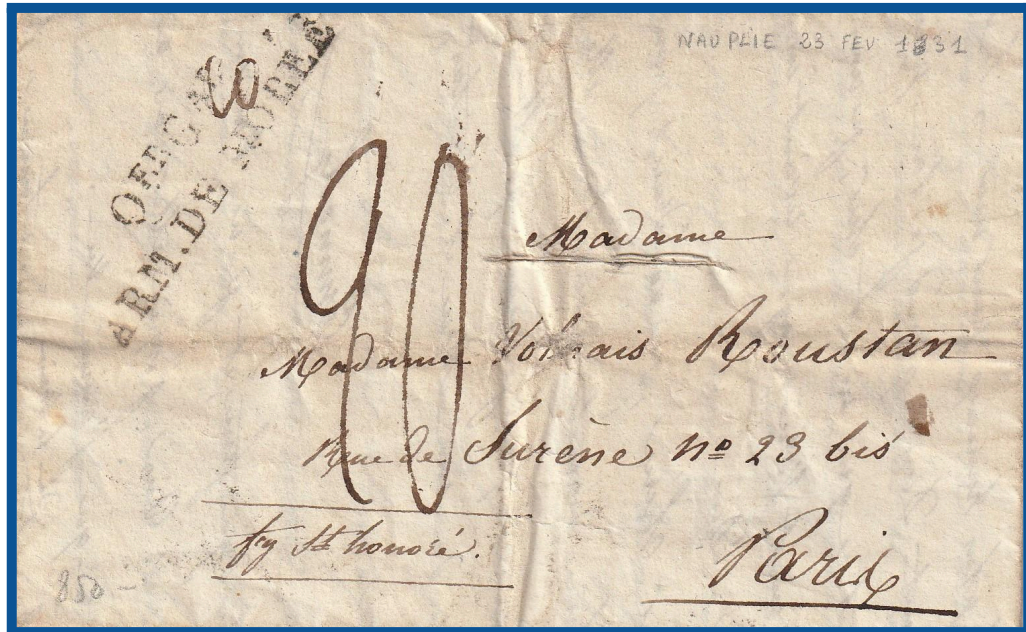 NAUPLIE 23 FEV 1831
ARM. DE MOREE
20
90
Madame
Madame Roustan
Rue de Surène nº 23 bis
fg St honoré.
Paris
850 -